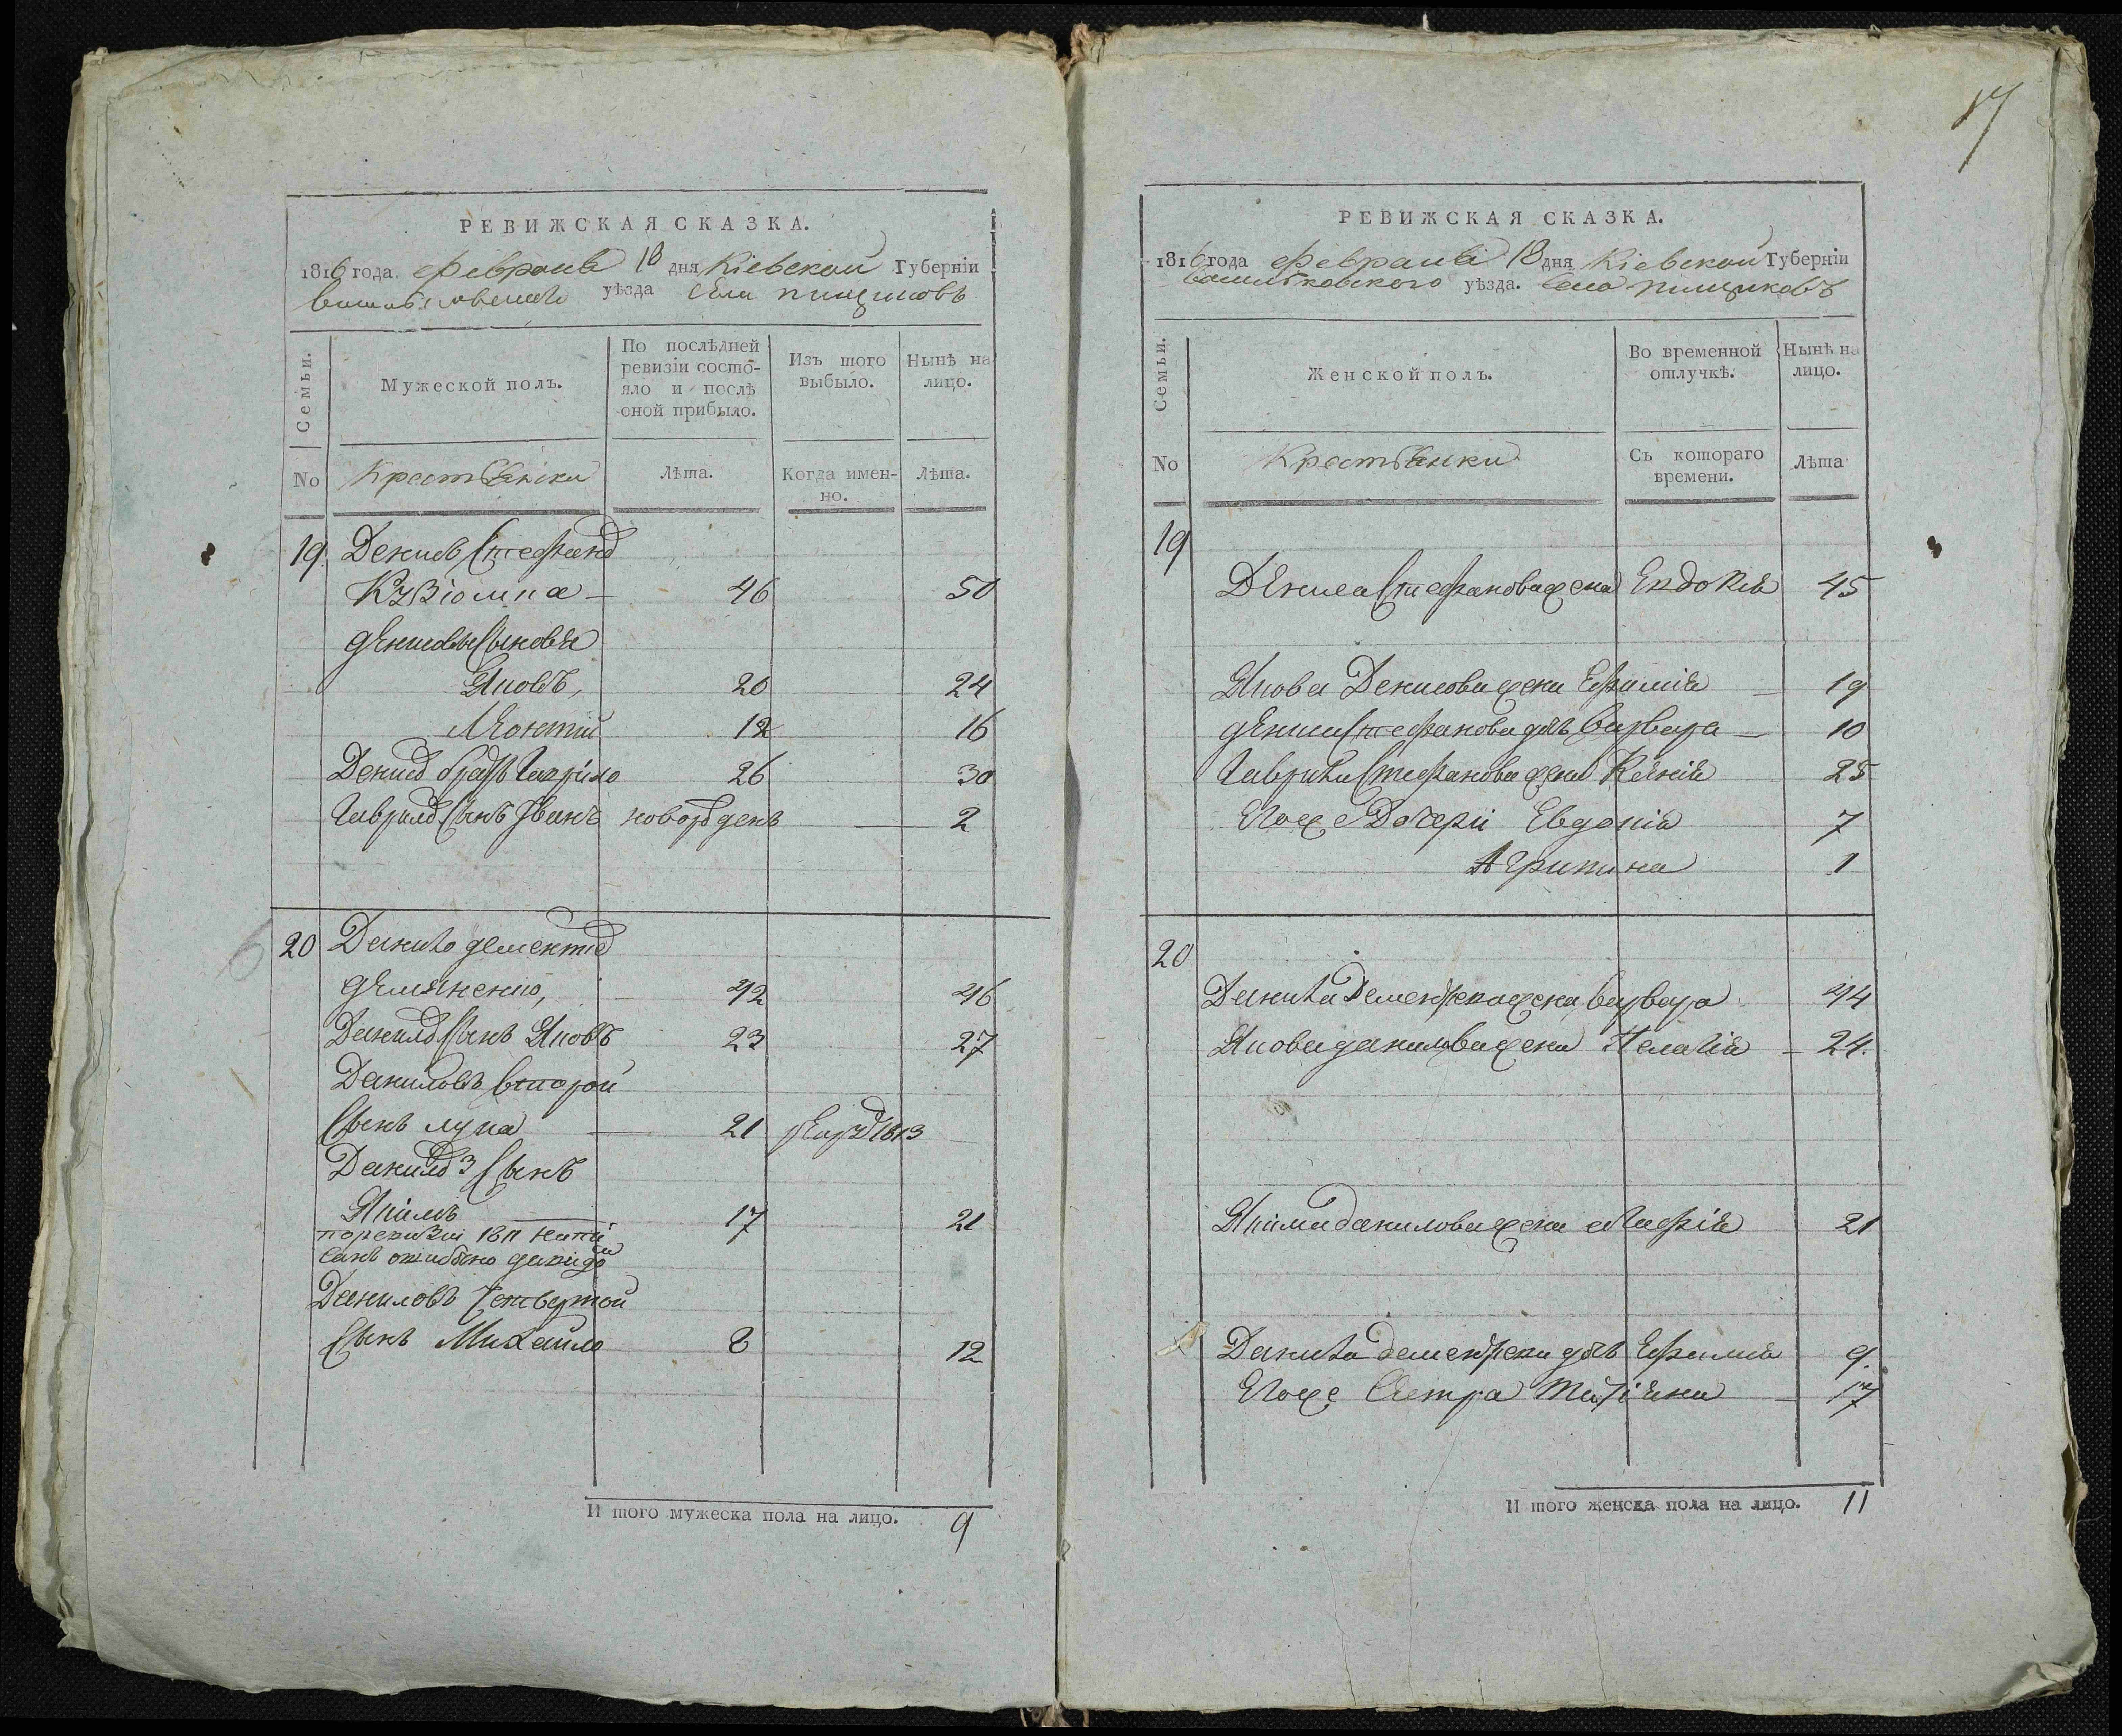 17
РЕВИЖСКАЯ СКАЗКА.
1816 года Февраля 18 дня Кіевской Губерніи
уѣзда села пищиковъ
Семьи.
Мужеской полъ.
По послѣдней ревизіи состо-
яло и послѣ оной прибыло.
Изъ того выбыло.
Нынѣ на лицо.
No
Лѣта.
Когда имен-
но.
Лѣта.
19. Денисъ Стефановъ
46 50
денисовы Сыновья
Яковъ, 20 24
Леонтій 12 16
Денисов братъ Гаврило 26 30
Гаврилов Сынъ Иванъ новорожденъ 2
20 Данило дементіев
демяненко, 42 46
Данилов Сынъ Яковъ 23 27
Даниловъ второй
Сынъ лука 21 1813
Данилов 3 Сынъ
Якимъ 17 21
поревизіи 1811 напи
санъ ошибкою
Даниловъ Четвертой
Сынъ Михайло 8 12
И того мужеска пола на лицо. 9
РЕВИЖСКАЯ СКАЗКА.
1816 года Февраля 18 дня Кіевской Губерніи
васильковского уѣзда. села пищиковъ
Семьи.
Женской полъ.
Во временной отлучкѣ.
Нынѣ на лицо.
No
Крестьянки
Съ котораго времени.
Лѣта
19
Дениса Стефанова жена Евдокия 45
Якова Денисова жена Ефимия 19
дениса Стефанова дочь варвара 10
Гаврила Стефанова жена Ксения 25
Егоже Дочери Евдокия 7
Агрипина 1
20
Данила Дементиева жена варвара 44
Якова данилова жена Пелагия 24.
Якима данилова жена 21
Данила дементиева дочь Ефимия 9
Егоже Сестра Татіяна 17
И того женска пола на лицо. 11